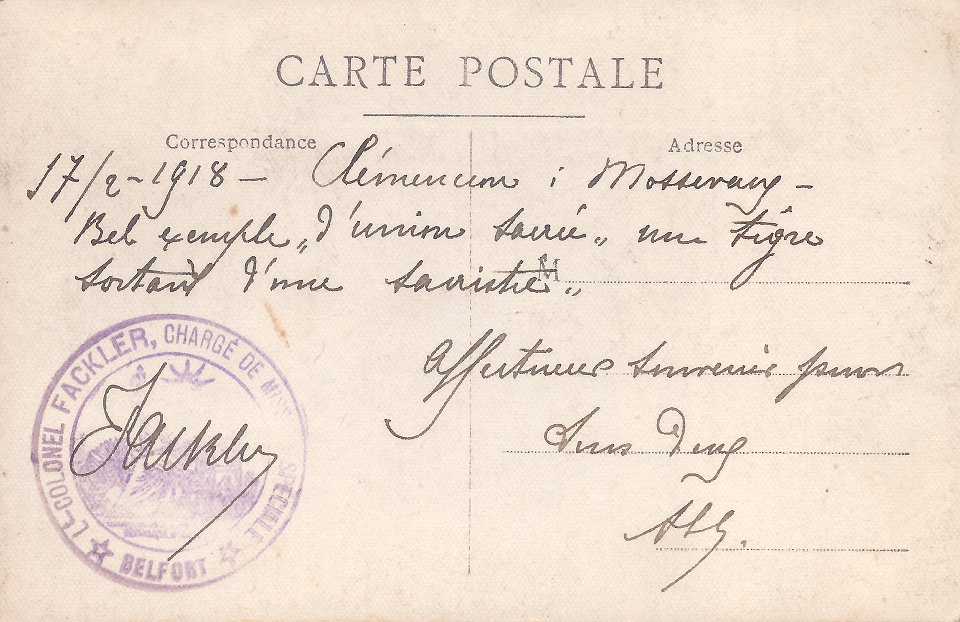 CARTE POSTALE
Correspondance
Adresse
17/2-1918 - Clémenceau à Massevaux -
Bel exemple „d'union sacrée„ un tigre
sortant d'une sacristie„
M
Affectueux souvenir pour
tous deux
LT-COLONEL FACKLER, CHARGÉ DE MISSION SPECIALE
BELFORT
Fackler